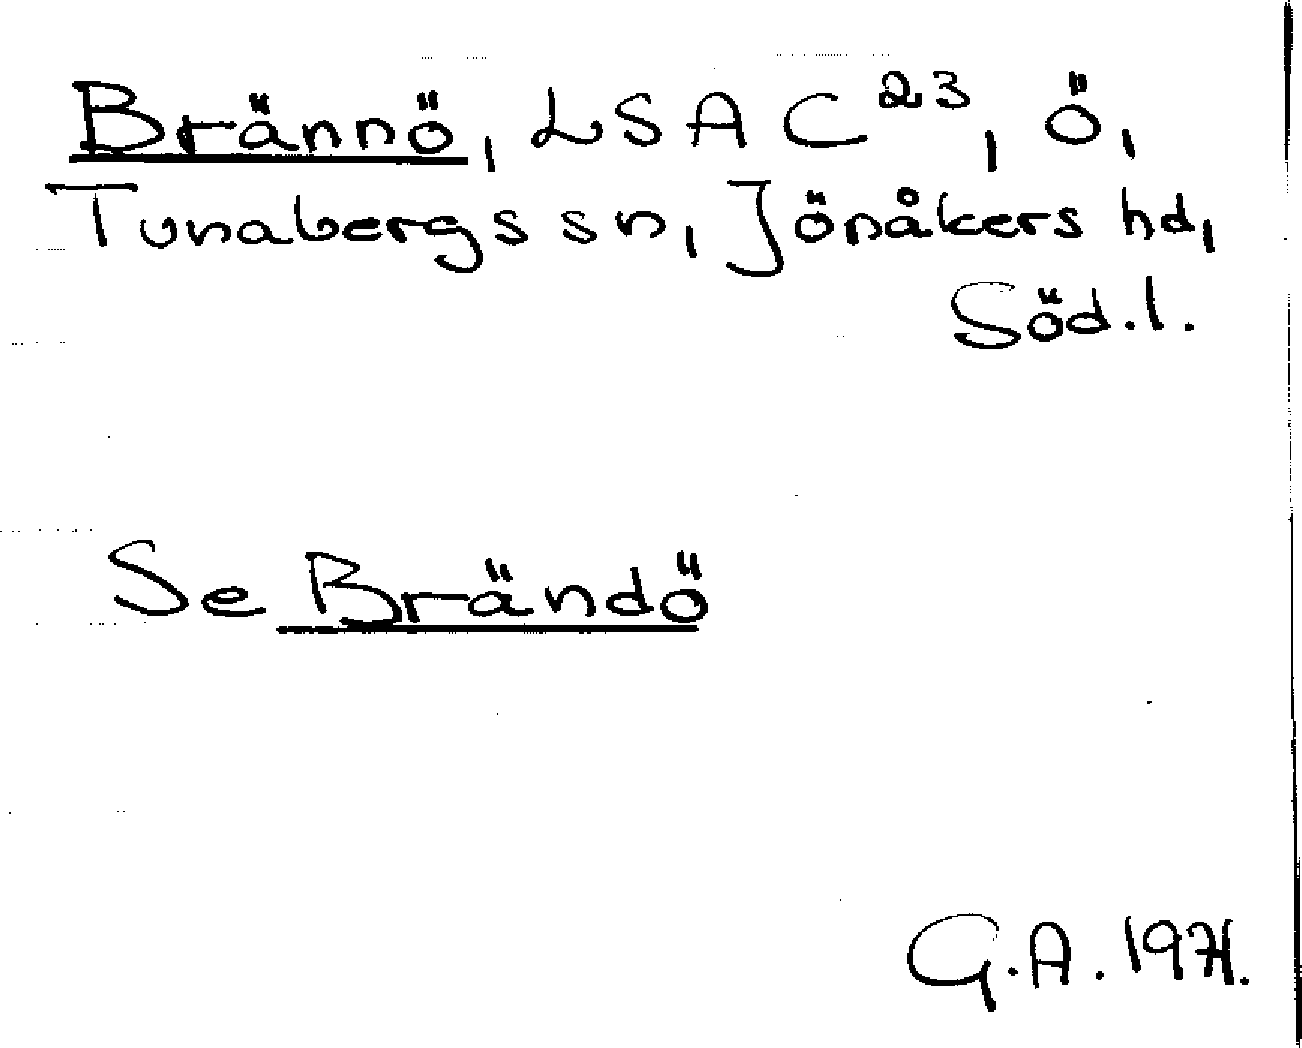 Brännö, LSA C²³, Ö,
Tunabergs sn, Jönåkers hd,
Söd.l.
Se Brändö
G.A. 1971.